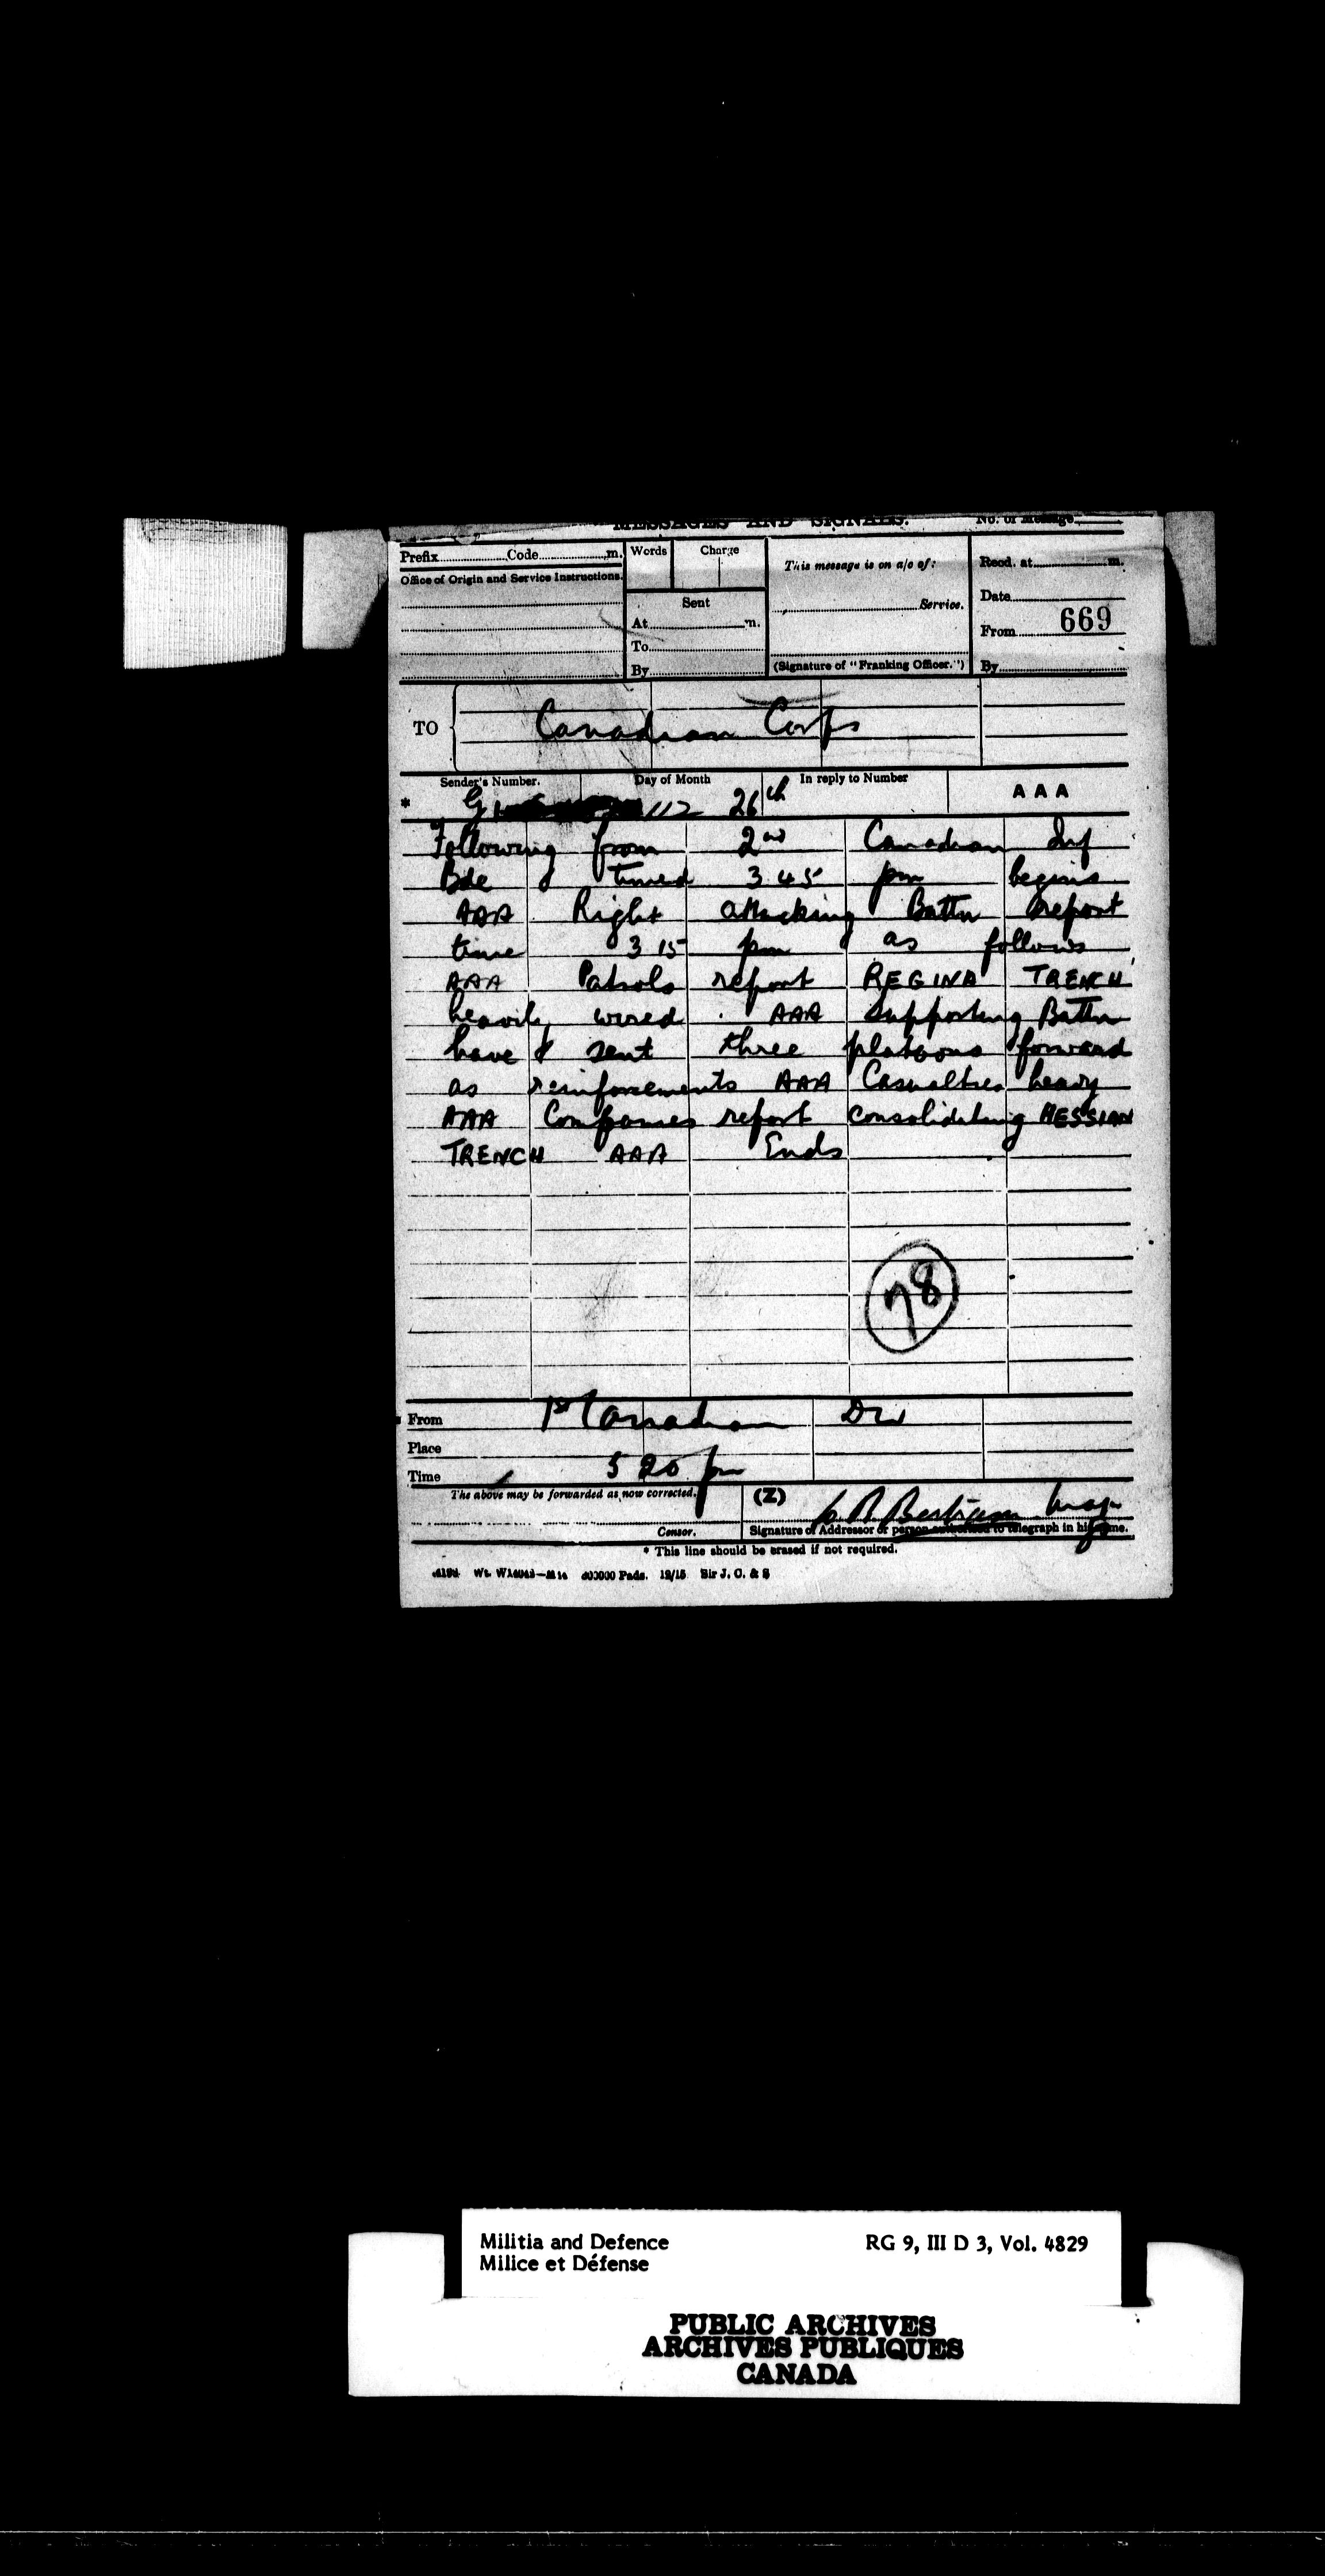 MESSAGES AND SIGNALS. No. of Message
Prefix Code m. Words Charge
This message is on a/c of: Recd. at m.
Office of Origin and Service Instructions.
Sent
Service. Date
At m. From 669
To
By (Signature of "Franking Officer.") By
TO Canadian Corps
Sender's Number. Day of Month In reply to Number AAA
* G 112 26th
Following from 2nd Canadian Inf
Bde timed 3 45 pm begins
AAA Right attacking Battn report
time 3 15 pm as follows
AAA Patrols report REGINA TRENCH
heavily wired. AAA Supporting Battn
have sent three platoons forward
as reinforcements AAA Casualties heavy
AAA Companies report consolidating HESSIAN
TRENCH AAA Ends
78
From 1st Canadian Div
Place
Time 5 20 pm
The above may be forwarded as now corrected. (Z) Bertram Major
Censor. Signature of Addressor or person authorised to telegraph in his name.
* This line should be erased if not required.
Pads. 12/15 Sir J. C. & S
Militia and Defence RG 9, III D 3, Vol. 4829
Milice et Défense
PUBLIC ARCHIVES
ARCHIVES PUBLIQUES
CANADA